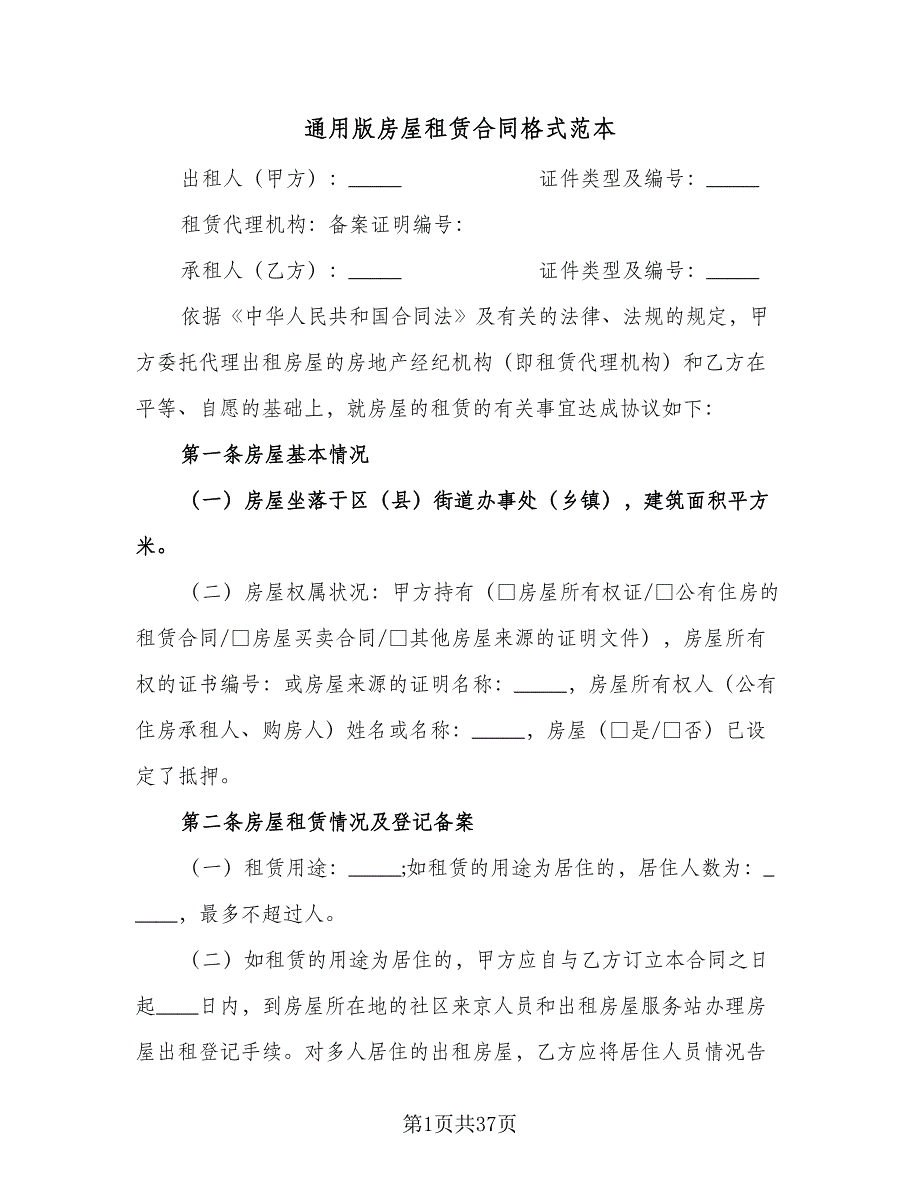 通用版房屋租赁合同格式范本
出租人（甲方）：_____ 证件类型及编号：_____
租赁代理机构：备案证明编号：
承租人（乙方）：_____ 证件类型及编号：_____
依据《中华人民共和国合同法》及有关的法律、法规的规定，甲
方委托代理出租房屋的房地产经纪机构（即租赁代理机构）和乙方在
平等、自愿的基础上，就房屋的租赁的有关事宜达成协议如下：
第一条房屋基本情况
（一）房屋坐落于区（县）街道办事处（乡镇），建筑面积平方
米。
（二）房屋权属状况：甲方持有（□房屋所有权证/□公有住房的
租赁合同/□房屋买卖合同/□其他房屋来源的证明文件），房屋所有
权的证书编号：或房屋来源的证明名称：_____，房屋所有权人（公有
住房承租人、购房人）姓名或名称：_____，房屋（□是/□否）已设
定了抵押。
第二条房屋租赁情况及登记备案
（一）租赁用途：_____;如租赁的用途为居住的，居住人数为：_
____，最多不超过人。
（二）如租赁的用途为居住的，甲方应自与乙方订立本合同之日
起____日内，到房屋所在地的社区来京人员和出租房屋服务站办理房
屋出租登记手续。对多人居住的出租房屋，乙方应将居住人员情况告
第1页共37页